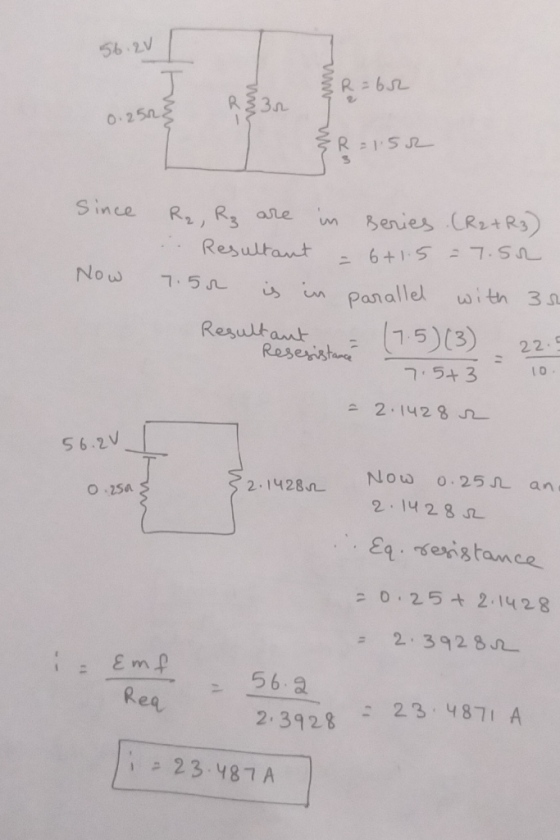 56.2V
0.25Ω
R1 3Ω
R2 = 6Ω
R3 = 1.5Ω
Since R2, R3 are in series (R2+R3)
∴ Resultant = 6+1.5 = 7.5Ω
Now 7.5Ω is in parallel with 3Ω
Resultant Resesistance = (7.5)(3) / 7.5+3 = 22.5 / 10.
= 2.1428 Ω
56.2V
0.25Ω
2.1428Ω
Now 0.25Ω an
2.1428Ω
∴ Eq. resistance
= 0.25 + 2.1428
= 2.3928Ω
i = Emf / Req = 56.2 / 2.3928 = 23.4871 A
i = 23.487A